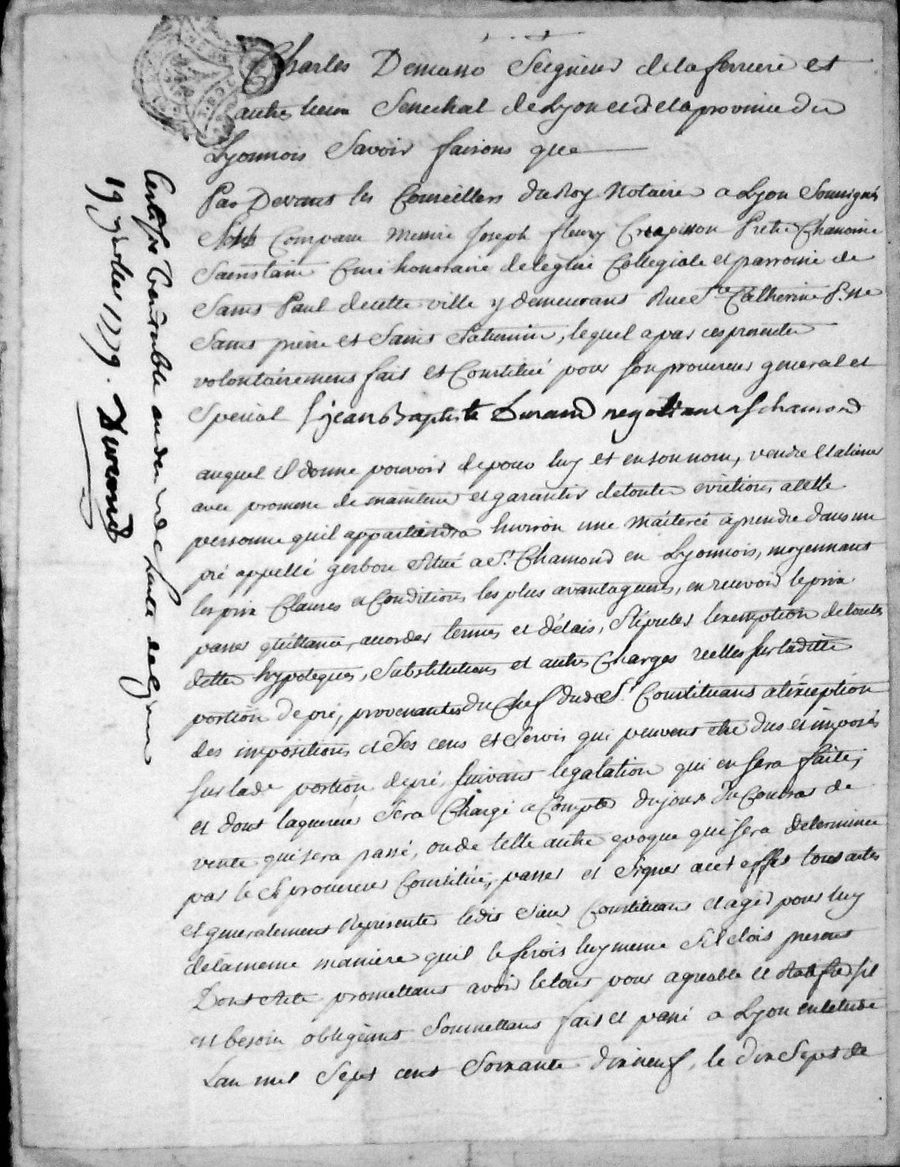 Charles Demasso Seigneur de la ferriere et
autres lieux Senechal de Lyon et de la province du
Lyonnois Savoir faisons que
Par Devant les Conseillers du Roy Notaire a Lyon Soussignés
Compare Messire Joseph fleury Crepisson Pretre Chanoine
Sacristain Curé honoraire de leglise Collegiale et parroisse de
Saint Paul de cette ville y demeurant Rue Ste Catherine P.sse
Saint pierre et Saint Saturnin, lequel a par ces presentes
volontairement fait et Constitué pour son procureur general et
Special Sr jean Baptiste Durand negotiant a St chamond
auquel il donne pouvoir de pour luy et en son nom, vendre et aliener
avec promesse de maintenir et garantir de toutes evictions a telle
personne quil appartiendra huviron une maiterée à prendre dans un
pré appellé gerbon Situé a St. Chamond en Lyonnois, moyennant
les prix Clauses et Conditions les plus avantageuses, en recevoir le prix
passer quittance, accorder termes et délais, Stipuler lexemption de toutes
dettes hypoteques, Substitutions et autres Charges reelles sur laditte
portion de pré, provenantes du Chef dud. Sr. Constituant a léxception
des impositions et des cens et Servis qui peuvent etre dus et imposés
sur lade portion de pré, suivant legalation qui en Sera faite,
et dont laquereur Sera Chargé a Compter du jour du Contrat de
vente qui sera passé, ou de telle autre epoque qui sera determinée
par led. procureur Constitué, passer et Signer a cet effet tous actes
et generalement Representer ledit Sieur Constituant et agir pour luy
de la meme maniere quil le feroit luy meme Sil etoit present
Dont Acte promettant avoir le tout pour agreable et sil
est besoin obligeant Soumettant fait et passé a Lyon en letude
Lan mil Sept cent Soixante dix neuf, le dix Sept de
Certifié veritable au de Lacte de
19 1779. Durand